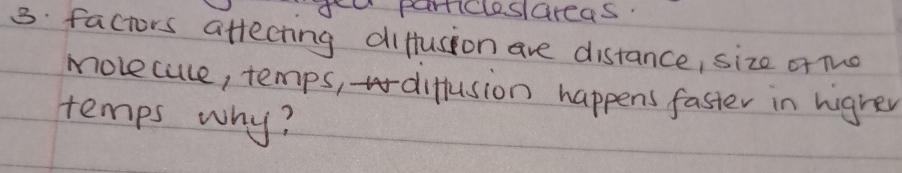 particles/areas.
3. factors affecting diffusion are distance, size of the
molecule, temps, diffusion happens faster in higher
temps why?